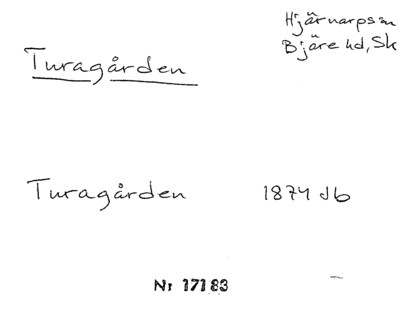 Hjärnarps sn
Bjäre hd, Sk
Turagården
Turagården 1874 db
Nr 17183